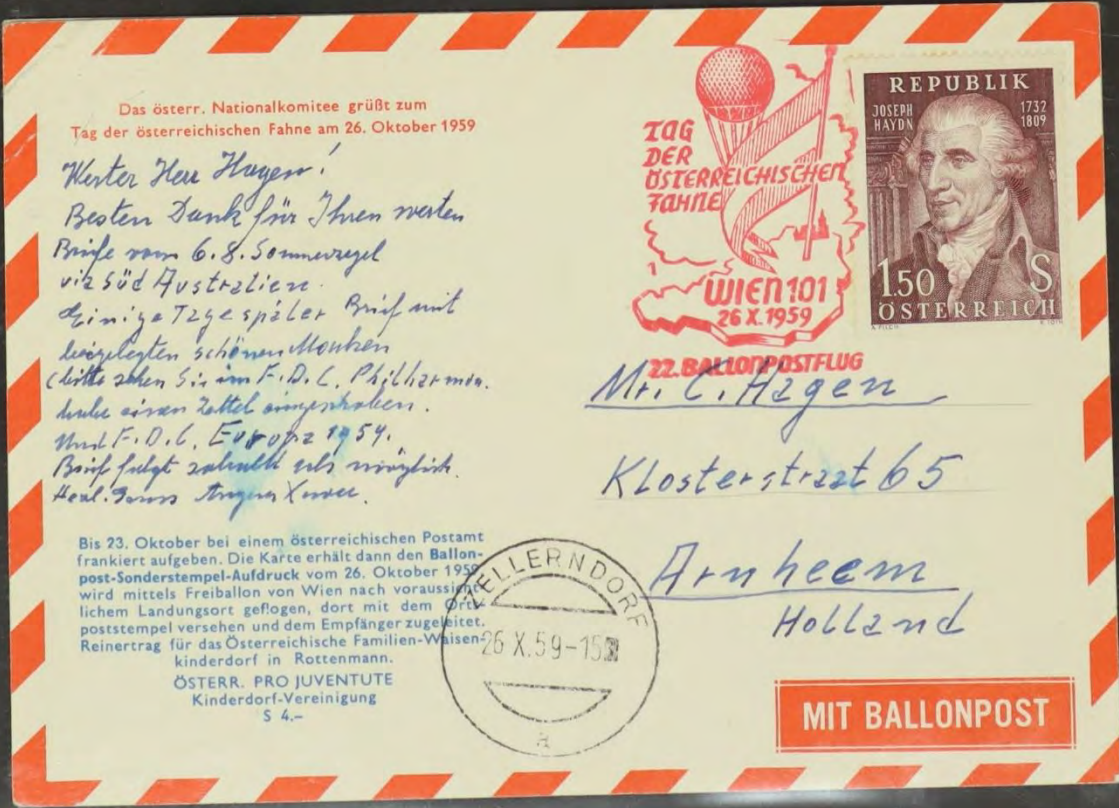 Das österr. Nationalkomitee grüßt zum
Tag der österreichischen Fahne am 26. Oktober 1959
Werter Herr Hagen!
Besten Dank für Ihren werten
Briefe vom 6.8. Sommerzegel
via Süd Australien.
Einige Tage später Brief mit
beigelegten schönen Marken
(bitte sehen Sie im F.D.C. Philharmon.
habe einen Zettel eingeschoben.
Und F.D.C. Europa 1959.
Brief folgt sobald als möglich.
Herzl.
Bis 23. Oktober bei einem österreichischen Postamt
frankiert aufgeben. Die Karte erhält dann den Ballon-
post-Sonderstempel-Aufdruck vom 26. Oktober 1959
wird mittels Freiballon von Wien nach voraussicht-
lichem Landungsort geflogen, dort mit dem Orts-
poststempel versehen und dem Empfänger zugeleitet.
Reinertrag für das Österreichische Familien-Waisen-
kinderdorf in Rottenmann.
ÖSTERR. PRO JUVENTUTE
Kinderdorf-Vereinigung
S 4.–
TAG
DER
ÖSTERREICHISCHEN
FAHNE
WIEN 101
26 X. 1959
22. BALLONPOSTFLUG
REPUBLIK
JOSEPH HAYDN
1732 1809
1.50 S
ÖSTERREICH
Mr. C. Hagen
Klosterstraat 65
Arnheem
Holland
ZELLERNDORF
26 X.59-15
a
MIT BALLONPOST